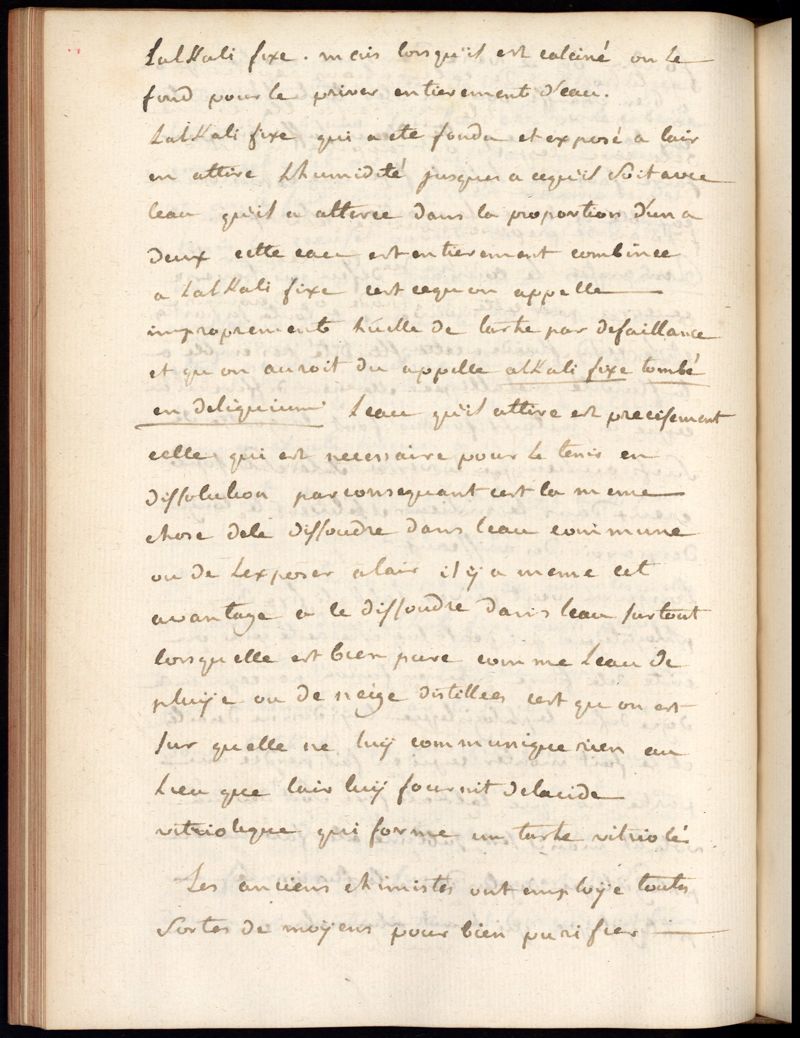 Lalkali fixe. mais lorsqu'il est calciné on Le
fond pour le priver entierement d'eau.
Lalkali fixe qui a eté fondu et exposé a lair
en attire Lhumidité jusques a cequ'il soit avec
leau qu'il a attirée dans la proportion d'un a
deux cette eau est entierement combinée
a Lalkali fixe cest cequ'on appelle
improprement huelle de tartre par defaillance
et qu'on auroit du appelle alkali fixe tombé
en deliquium. Leau qu'il attire est precisement
celle qui est necessaire pour Le tenir en
dissolution parconsequant cest la meme
chose dele dissoudre dans leau commune
ou de Lexposer alair il ÿ a meme cet
avantage a le dissoudre dans leau surtout
lorsquelle est bien pure comme Leau de
pluÿe ou de neige distillées cest qu'on est
sur quelle ne luÿ communique rien au
Lieu que lair luÿ fournit delacide
vitriolique qui forme un tartre vitriolé
Les anciens chimistes ont emploÿé toutes
sortes de moÿens pour bien purifier